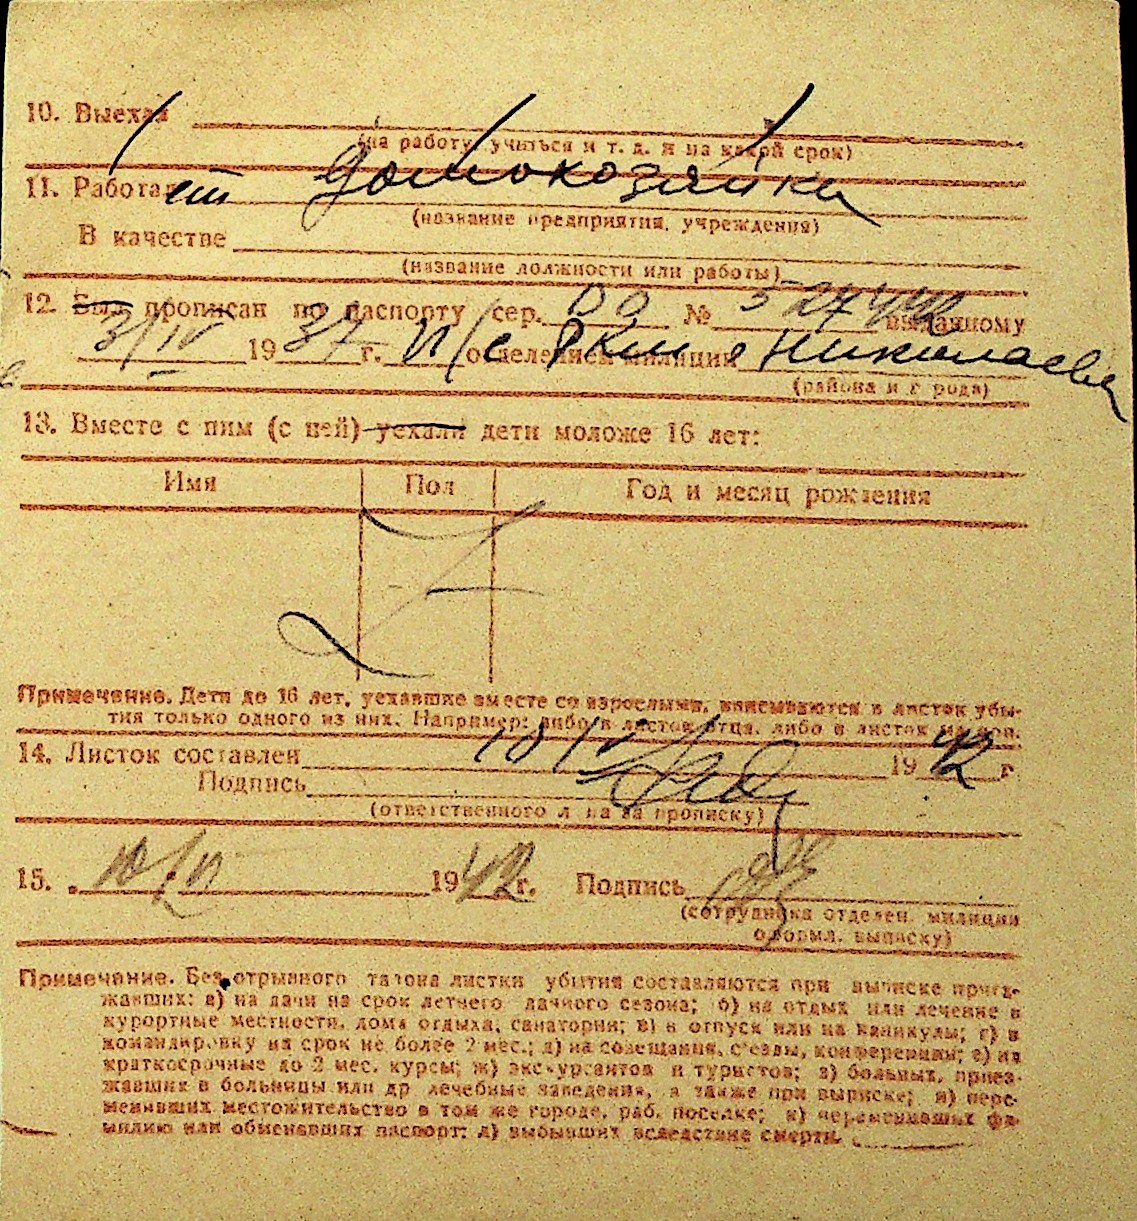 10. Выехал
(на работу, учиться и т. д. и на какой срок)
11. Работает домохозяйка
(название предприятия, учреждения)
В качестве
(название должности или работы)
12. Был прописан по паспорту сер. № выданному
3/IV 1937 г. отделением милиции Николаева
(района и города)
13. Вместе с ним (с ней) уехали дети моложе 16 лет:
Имя Пол Год и месяц рождения
Примечание. Дети до 16 лет, уехавшие вместе со взрослыми, вписываются в листок убы-
тия только одного из них. Например: либо в листок отца, либо в листок матери.
14. Листок составлен 1942 г
Подпись
(ответственного лица за прописку)
15. 1942 г. Подпись
(сотрудника отделен. милиции
оформл. выписку)
Примечание. Без отрывного талона листки убытия составляются при выписке приез-
жавших: а) на дачи на срок летнего дачного сезона; б) на отдых или лечение в
курортные местности, дома отдыха, санатории; в) в отпуск или на каникулы; г) в
командировку на срок не более 2 мес.; д) на совещания, с'езды, конференции; е) на
краткосрочные до 2 мес. курсы; ж) экскурсантов и туристов; з) больных, приез-
жавших в больницы или др лечебные заведения, а также при выписке; и) пере-
менивших местожительство в том же городе, раб. поселке; к) переменивших фа-
милию или обменавших паспорт; л) выбывших вследствие смерти.